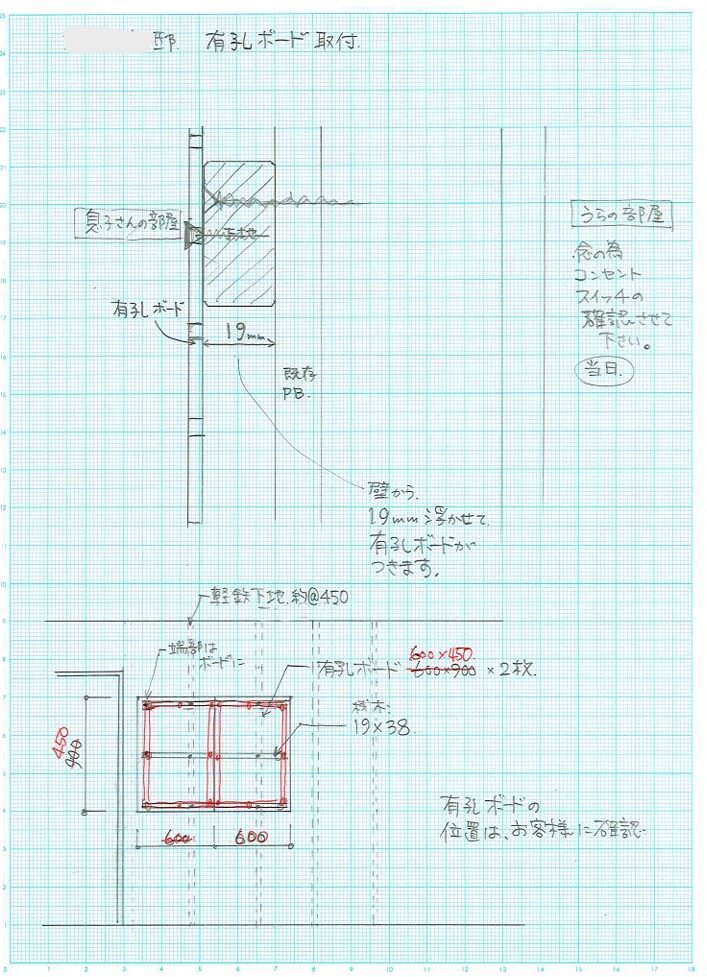 邸. 有孔ボード取付.
息子さんの部屋
下地
うらの部屋
念の為
コンセント
スイッチの
確認させて
下さい。
当日.
有孔ボード
19mm
既存
PB.
壁から.
19mm浮かせて
有孔ボードが
つきます。
軽鉄下地.約@450
端部は
ボードに
600×450
有孔ボード 600×900 ×2枚.
桟木.
19×38.
450
900
600 600
有孔ボードの
位置は、お客様に確認
25
24
22
21
20
19
18
17
16
15
14
13
12
11
10
9
8
7
6
5
4
3
2
1
0 1 2 3 4 5 6 7 8 9 10 11 12 13 14 15 16 17 18